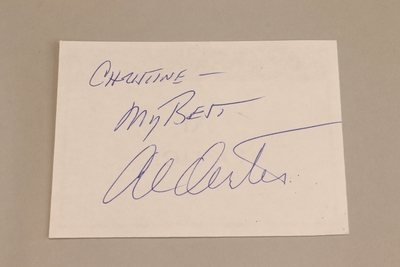 CHRISTINE —
MY BEST
Al Oerter